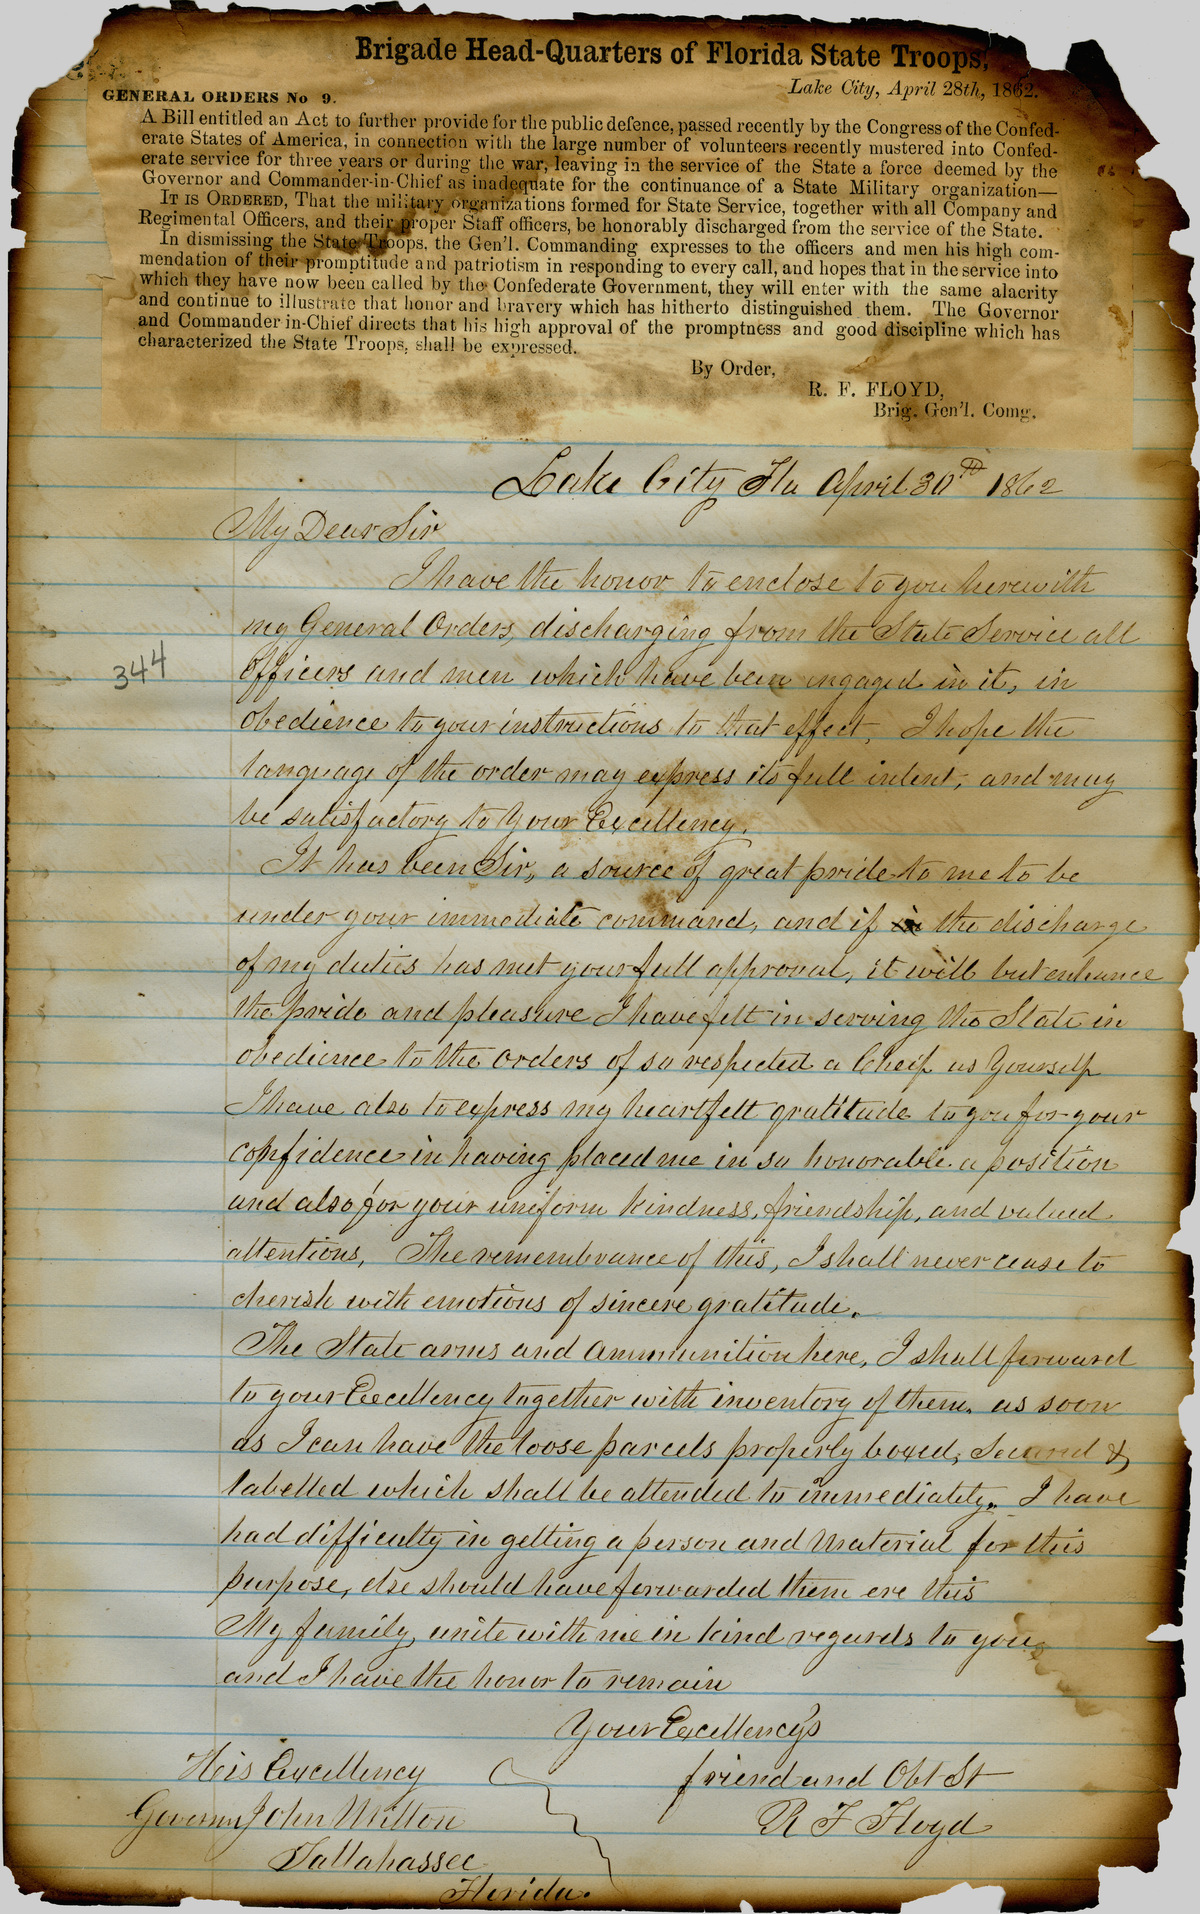 Brigade Head-Quarters of Florida State Troops,
Lake City, April 28th, 1862.
GENERAL ORDERS No 9.
A Bill entitled an Act to further provide for the public defence, passed recently by the Congress of the Confed-
erate States of America, in connection with the large number of volunteers recently mustered into Confed-
erate service for three years or during the war, leaving in the service of the State a force deemed by the
Governor and Commander-in-Chief as inadequate for the continuance of a State Military organization—
IT IS ORDERED, That the military organizations formed for State Service, together with all Company and
Regimental Officers, and their proper Staff officers, be honorably discharged from the service of the State.
In dismissing the State Troops, the Gen'l. Commanding expresses to the officers and men his high com-
mendation of their promptitude and patriotism in responding to every call, and hopes that in the service into
which they have now been called by the Confederate Government, they will enter with the same alacrity
and continue to illustrate that honor and bravery which has hitherto distinguished them. The Governor
and Commander in-Chief directs that his high approval of the promptness and good discipline which has
characterized the State Troops, shall be expressed.
By Order,
R. F. FLOYD,
Brig. Gen'l. Comg.
Lake City Fla April 30th 1862
My Dear Sir
I have the honor to enclose to you herewith
my General Orders, discharging from the State Service all
344
Officers and men which have been engaged in it, in
obedience to your instructions to that effect, I hope the
language of the order may express its full intent, and may
be satisfactory to Your Excellency.
It has been Sir, a source of great pride to me to be
under your immediate command, and if in the discharge
of my duties has met your full approval, it will but enhance
the pride and pleasure I have felt in serving the State in
obedience to the orders of so respected a Cheif as Yourself
I have also to express my heartfelt gratitude to you for your
confidence in having placed me in so honorable a position
and also for your uniform kindness, friendship, and valued
attentions, The remembrance of this, I shall never cease to
cherish with emotions of sincere gratitude.
The State arms and Ammunition here, I shall forward
to your Excellency together with inventory of them, as soon
as I can have the loose parcels properly boxed, Secured &
labelled which shall be attended to immediately. I have
had difficulty in getting a person and Material for this
purpose, else should have forwarded them ere this
My family, unite with me in kind regards to you
and I have the honor to remain
Your Excellency's
friend and Obt St
R F Floyd
His Excellency
Governor John Milton
Tallahassee
Florida.